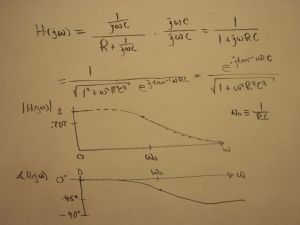 H(jω) = \frac{\frac{1}{jωC}}{R + \frac{1}{jωC}} · \frac{jωC}{jωC} = \frac{1}{1 + jωRC}
= \frac{1}{\sqrt{1^2 + ω^2R^2C^2} e^{j tan^{-1} ωRC}} = \frac{e^{-j tan^{-1} ωRC}}{\sqrt{1 + ω^2R^2C^2}}
|H(jω)|
1
.707
ω₀ ≡ \frac{1}{RC}
0 ω₀ ω
∡H(jω) 0° ω₀ ω
-45°
-90°
0